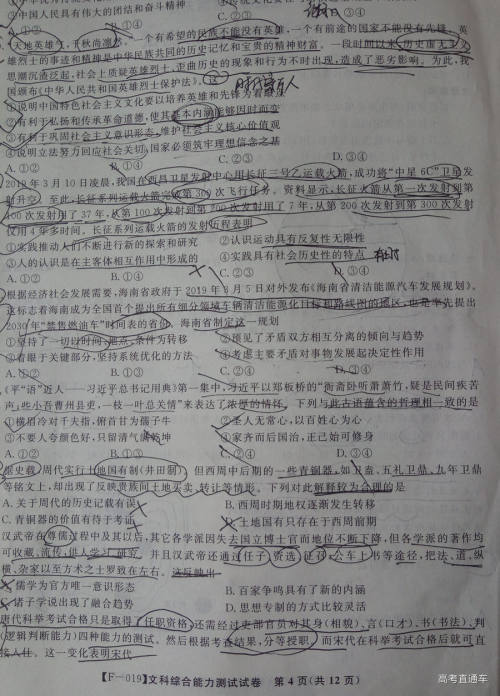 ②中国人民具有伟大的团结和奋斗精神
A. ①② C. ②③ D. ③④
“天地英雄气，千秋尚凛然。”一个有希望的民族不能没有英雄，一个有前途的国家不能没有先锋。英
雄烈士的事迹和精神是中华民族共同的历史记忆和宝贵的精神财富。一段时间以来，历史虚无主义
思潮沉渣泛起，社会上质疑英雄烈士、歪曲历史的现象和行为不时出现，造成了恶劣影响。为此，我
国颁布《中华人民共和国英雄烈士保护法》。这
①说明中国特色社会主义文化要以培养英雄和先锋为着眼点
②有利于弘扬和传承革命道德，使其基本内涵能够因时而变
③有利于巩固社会主义意识形态，维护社会主义核心价值观
④说明立法努力回应社会关切，国家必须筑牢理想信念之基
A. ①② B. ①④ C. ②③ D. ③④
2019年3月10日凌晨，我国在西昌卫星发射中心用长征三号乙运载火箭，成功将“中星6C”卫星发
射升空。至此，长征系列运载火箭完成第300次飞行任务。资料显示，长征火箭从第一次发射到第
100次发射用了37年，从第100次发射到第200次发射用了7年，从第200次发射到第300次发射
仅用4年多时间。长征系列运载火箭的发射历程表明
①实践推动人们不断进行新的探索和研究 ②认识运动具有反复性无限性
③人的认识是在主客体相互作用中形成的 ④实践具有社会历史性的特点
A. ①② B. ①④ C. ②③ D. ③④
根据经济社会发展需要，海南省政府于2019年3月5日对外发布《海南省清洁能源汽车发展规划》。
这标志着海南成为全国首个提出所有细分领域车辆清洁能源化目标和路线图的地区，也是率先提出
2030年“禁售燃油车”时间表的省份。海南省制定这一规划
①坚持了一切以时间、地点、条件为转移 ②预见了矛盾双方相互分离的倾向与趋势
③着眼于关键部分，坚持系统优化的方法 ④考虑主要矛盾对事物发展起决定性作用
A. ①② B. ①③ C. ②④ D. ③④
《平“语”近人——习近平总书记用典》第一集中，习近平以郑板桥的“衙斋卧听萧萧竹，疑是民间疾苦
声；些小吾曹州县吏，一枝一叶总关情”来表达了浓厚的情怀。下列与此古语蕴含的哲理相一致的是
①横眉冷对千夫指，俯首甘为孺子牛 ②圣人无常心，以百姓心为心
③不要人夸颜色好，只留清气满乾坤 ④家齐而后国治，正己始可修身
A. ①② B. ①③ C. ②④ D. ③④
据史载，周代实行土地国有制（井田制）。但西周中后期的一些青铜器，如卫盉、五礼卫鼎、九年卫鼎
等铭文上，却出现了反映贵族间土地买卖、转让等情形。下列对此解释较为合理的是
A. 关于周代的历史记载有误 B. 西周时期地权逐渐发生转移
C. 青铜器的价值有待于考证 D. 土地国有只存在于西周前期
汉武帝在尊儒过程中及其以后，其它各学派因失去国立博士官而地位不断下降，但各学派的著作均
可收藏、流传，供人学习、研究。并且汉武帝还通过任子、赀选、征召、公车上书等途径，把法、道、纵
横、杂家以至方术之士罗致在左右。这反映出
A. 儒学为官方唯一意识形态 B. 百家争鸣具有了新的内涵
C. 诸子学说出现了融合趋势 D. 思想专制的方式比较灵活
唐代科举考试合格只是取得了任职资格，还需经过吏部官员对其身（相貌）、言（口才）、书（书法）、判
（逻辑判断能力）四种能力的测试。然后根据考查结果，分等授职。而宋代在科举考试合格后就可直
接入仕。这一变化表明宋代
【F-019】文科综合能力测试试卷 第4页（共12页）
高考直通车